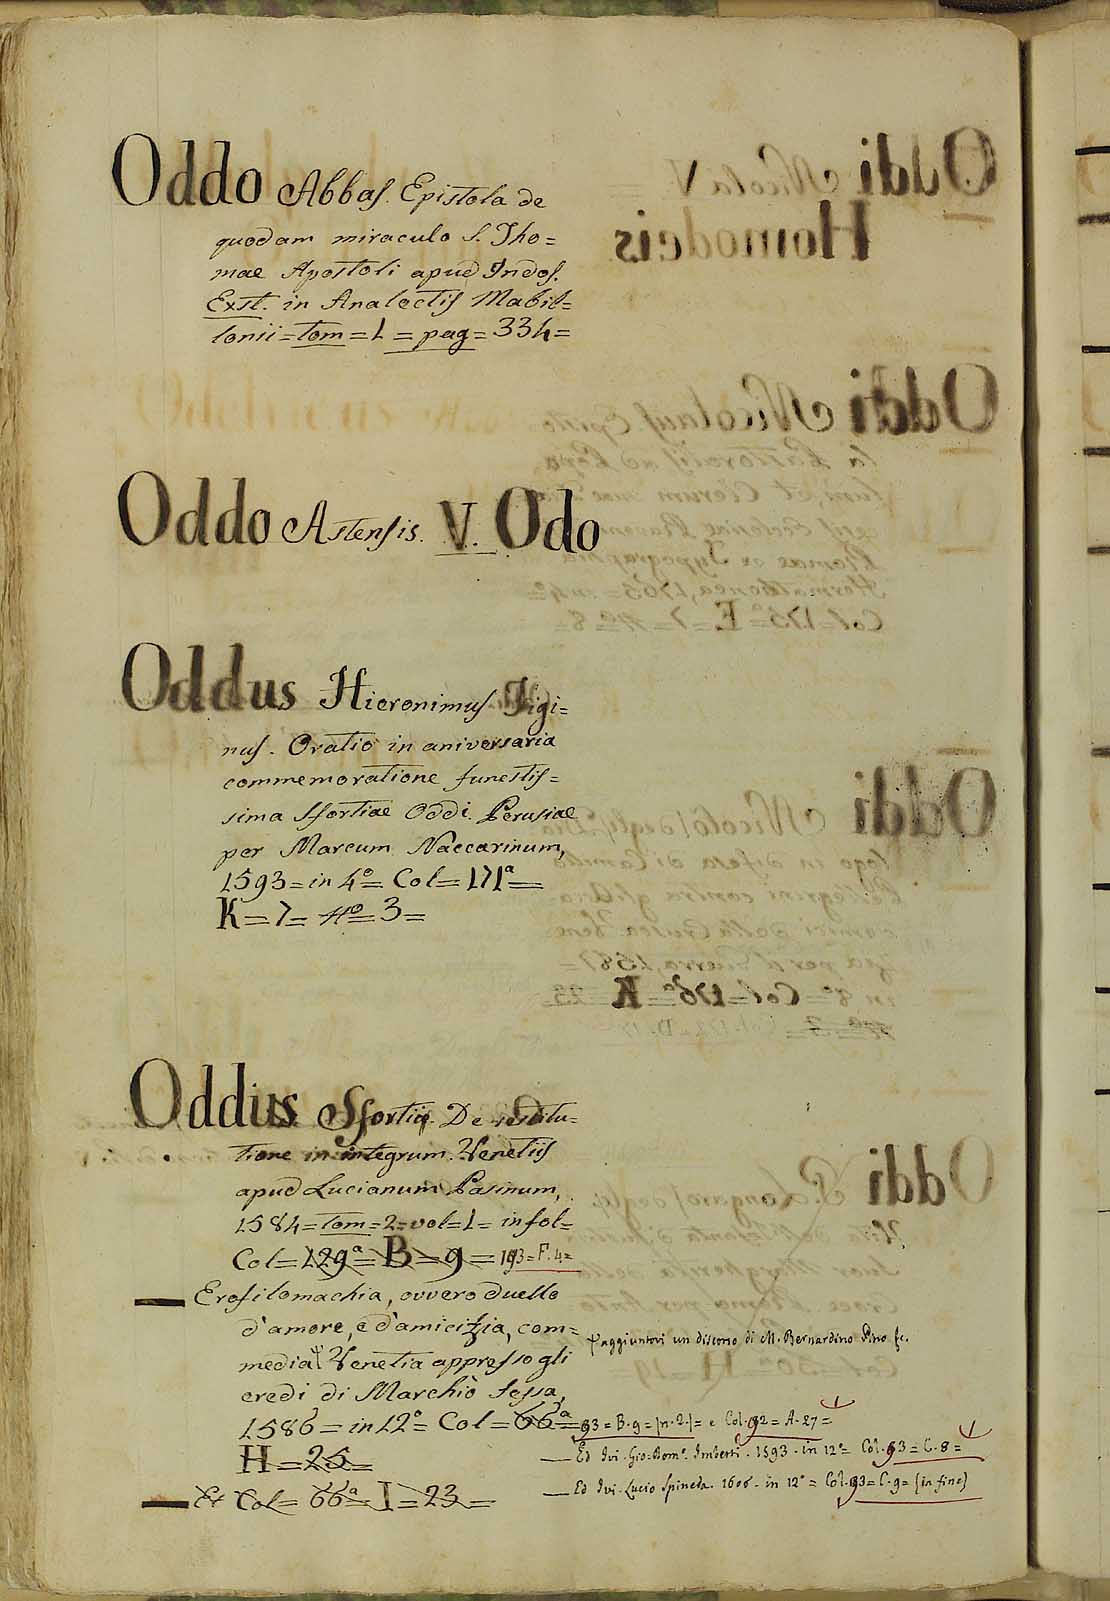 Oddo Abbas. Epistola de
quodam miraculo S. Tho=
mae Apostoli apud Indos.
Exst. in Analectis Mabil=
lonii = tom = 1 = pag = 334 =
Oddo Astensis. V. Odo
Oddus Hieronimus Figi=
nus. Oratio in aniversaria
commemoratione funestis=
sima Sfortiae Oddi. Perusiae
per Marcum Naccarinum,
1593 = in 4º = Col = 171ª =
K = 7 = nº = 3 =
Oddius Sfortię. De restitu=
tione in integrum. Venetiis
apud Lucianum Pasinum,
1584 = tom = 2 = vol = 1 = in fol =
Col = 129ª = B = 9 = 193 = F. 4 =
Erofilomachia, ovvero duello
d'amore, e d'amicitzia, com=
media Venetia appresso gli
eredi di Marchiò Sessa,
1586 = in 12º = Col = 66ª = 93 = B. 9 = [n. 2.] = e Col. 92 = A. 27 =
H = 25 =
Et Col = 66ª = I = 23 =
aggiuntovi un discorso di M. Bernardino Pino &c.
Ed Ivi. Gio: Dom.º Imberti. 1593. in 12º = Col. 93 = C. 8 =
Ed Ivi. Lucio Spineda. 1606. in 12º = Col. 93 = C. 9 = (in fine)